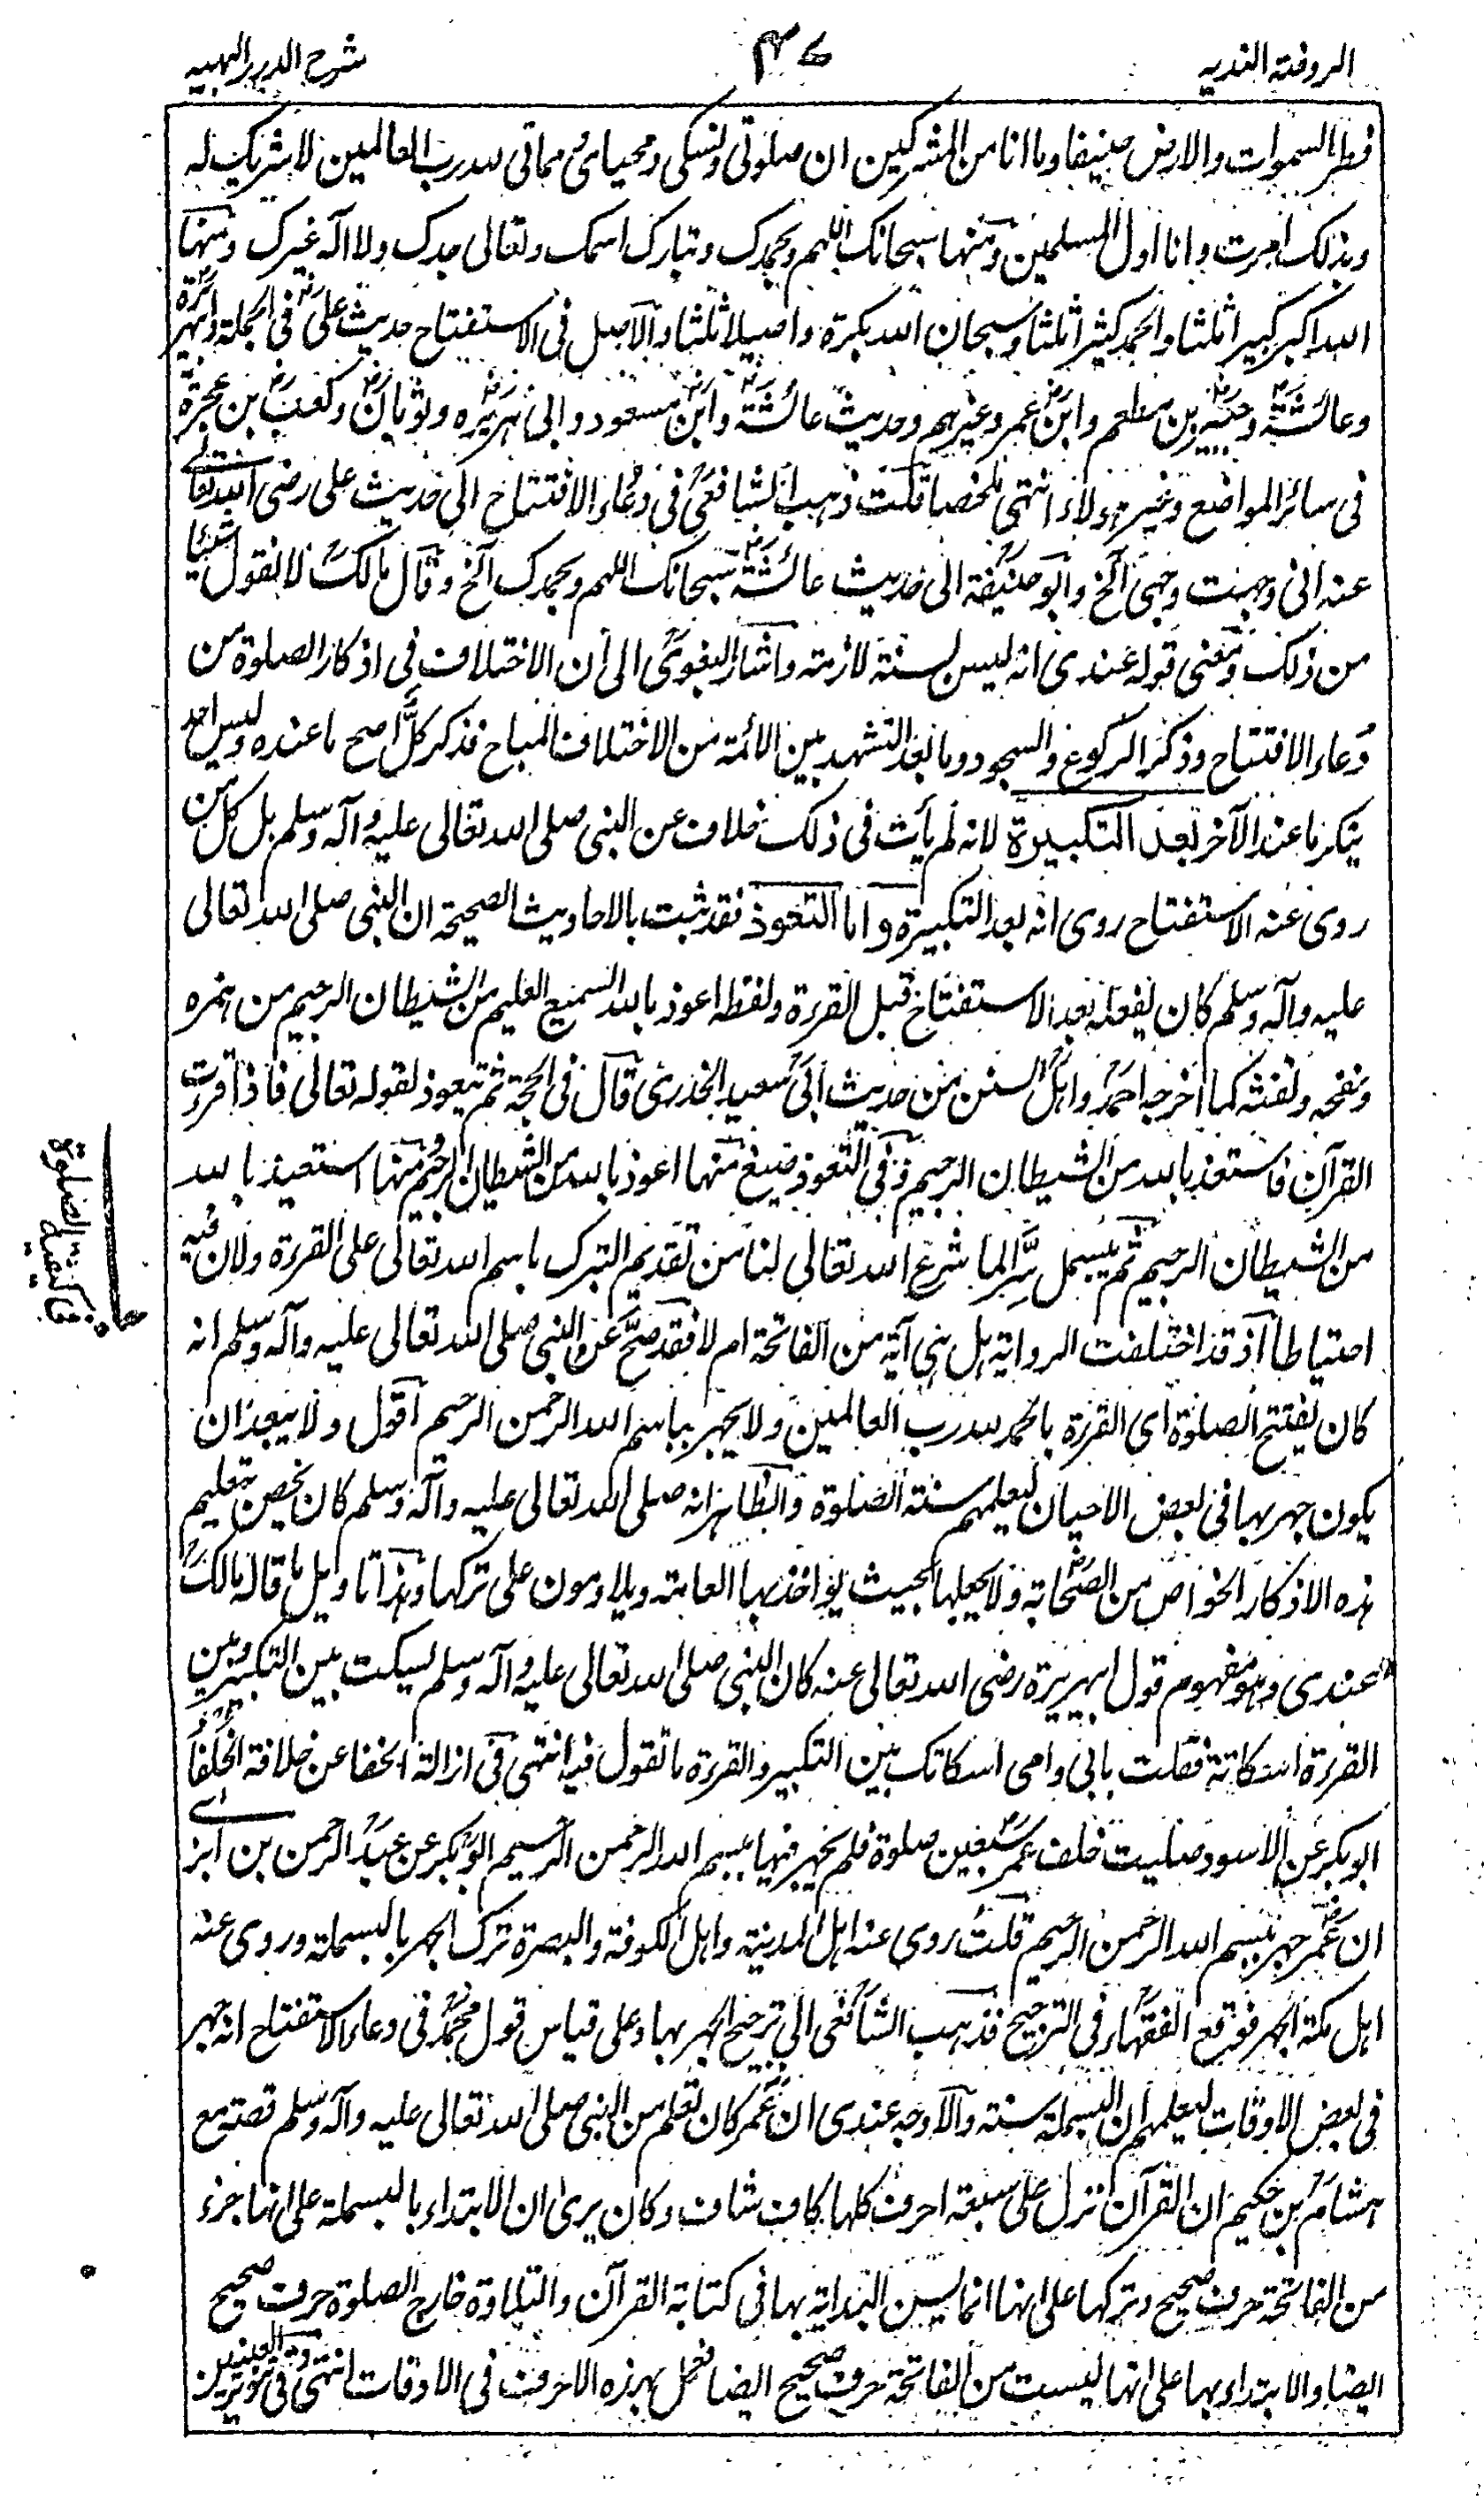 الروضة الندية
٤٧
شرح الدرر البهية
فطر السموات والارض حنيفا وما انا من المشركين ان صلوتى ونسكى ومحياى ومماتى لله رب العالمين لا شريك له
وبذلك امرت وانا اول المسلمين ومنها سبحانك اللهم وبحمدك وتبارك اسمك وتعالى جدك ولا اله غيرك ومنها
الله اكبر كبيرا ثلثا والحمد كثيرا ثلثا وسبحان الله بكرة واصيلا ثلثا والاصل فى الاستفتاح حديث علىؓ فى الجملة وابى هريرة
وعائشةؓ وجبيرؓ بن مطعم وابنؓ عمر وغيرهم وحديث عائشةؓ وابنؓ مسعود وابى هريرهؓ وثوبانؓ وكعبؓ بن عجرة
فى سائر المواضع وغير هؤلاء انتهى ملخصا قلت ذهب الشافعىؒ فى دعاء الافتتاح الى حديث على رضى الله تعالى
عنه انى وجهت وجهى الخ وابو حنيفةؒ الى حديث عائشةؓ سبحانك اللهم وبحمدك الخ وقال مالكؒ لا نقول شيئا
من ذلك ومعنى قوله عندى انه ليس لسنة لازمة واشار البغوىؒ الى ان الاختلاف فى اذكار الصلوة من
دعاء الافتتاح وذكر الركوع والسجود وما بعد التشهد بين الائمة من الاختلاف المباح فذكر كلٌّ اصح ما عنده وليس احد
ينكر ما عند الآخر بعد التكبيرة لانه لم يأت فى ذلك خلاف عن النبى صلى الله تعالى عليه وآله وسلم بل كل من
روى عنه الاستفتاح روى انه بعد التكبيرة واما التعوذ فقد ثبت بالاحاديث الصحيحة ان النبى صلى الله تعالى
عليه وآله وسلم كان يفعله بعد الاستفتاح قبل القرءة ولفظه اعوذ بالله السميع العليم من الشيطان الرجيم من همزه
ونفخه ونفثه كما اخرجه احمدؒ واهل السنن من حديث ابى سعيد الخدرى قال فى الحجة ثم يتعوذ لقوله تعالى فاذا قرءت
القرآن فاستعذ بالله من الشيطان الرجيم وفى التعوذ صيغ منها اعوذ بالله من الشيطان الرجيم ومنها استعيذ بالله
من الشيطان الرجيم ثم يبسمل سرًّا لما شرع الله تعالى لنا من تقديم التبرك باسم الله تعالى على القرءة ولان فيه
احتياطا اذ قد اختلفت الرواية هل هى آية من الفاتحة ام لا فقد صحّ عن النبى صلى الله تعالى عليه وآله وسلم انه
كان يفتتح الصلوة اى القرءة بالحمد لله رب العالمين ولا يجهر بباسم الله الرحمن الرحيم اقول ولا يبعد ان
يكون جهر بها فى بعض الاحيان ليعلمهم سنة الصلوة والظاهر انه صلى الله تعالى عليه وآله وسلم كان يخص بتعليم
هذه الاذكار الخواص من الصحابةؓ ولا يجعلها بحيث يؤاخذ بها العامة ويلاومون على تركها وهذا تاويل ما قال مالكؒ
عندى وهو مفهوم قول ابيهريرة رضى الله تعالى عنه كان النبى صلى الله تعالى عليه وآله وسلم يسكت بين التكبير وبين
القرءة اسكاتة فقلت بابى وامى اسكاتك بين التكبير والقرءة ما تقول فيه انتهى فى ازالة الخفا عن خلافة الخلفا
ابو بكر عن الاسود صليت خلف عمرؓ سبعين صلوة فلم يجهر فيها ببسم الله الرحمن الرحيم ابو بكر عن عبد الرحمن بن ابزى
ان عمرؓ جهر ببسم الله الرحمن الرحيم قلت روى عنه اهل المدينة واهل الكوفة والبصرة ترك الجهر بالبسملة وروى عنه
اهل مكة الجهر فوقع الفقهاء فى الترجيح فذهب الشافعى الى ترجيح الجهر بها وعلى قياس قول محمدؒ فى دعاء الاستفتاح انه جهر
فى بعض الاوقات ليعلمهم ان البسملة سنة والاوجه عندى ان عمرؓ كان تعلم من النبى صلى الله تعالى عليه وآله وسلم قصته مع
هشام بن حكيم ان القرآن انزل على سبعة احرف كلها كاف شاف وكان يرى ان الابتداء بالبسملة على انها جزء
من الفاتحة حرف صحيح وتركها على انها انما يسن البداية بها فى كتابة القرآن والتلاوة خارج الصلوة حرف صحيح
ايضا والابتداء بها على انها ليست من الفاتحة حرف صحيح ايضا فعمل بهذه الاحرف فى الاوقات انتهى وفى تنوير العينين
فى كيفية الصلوة